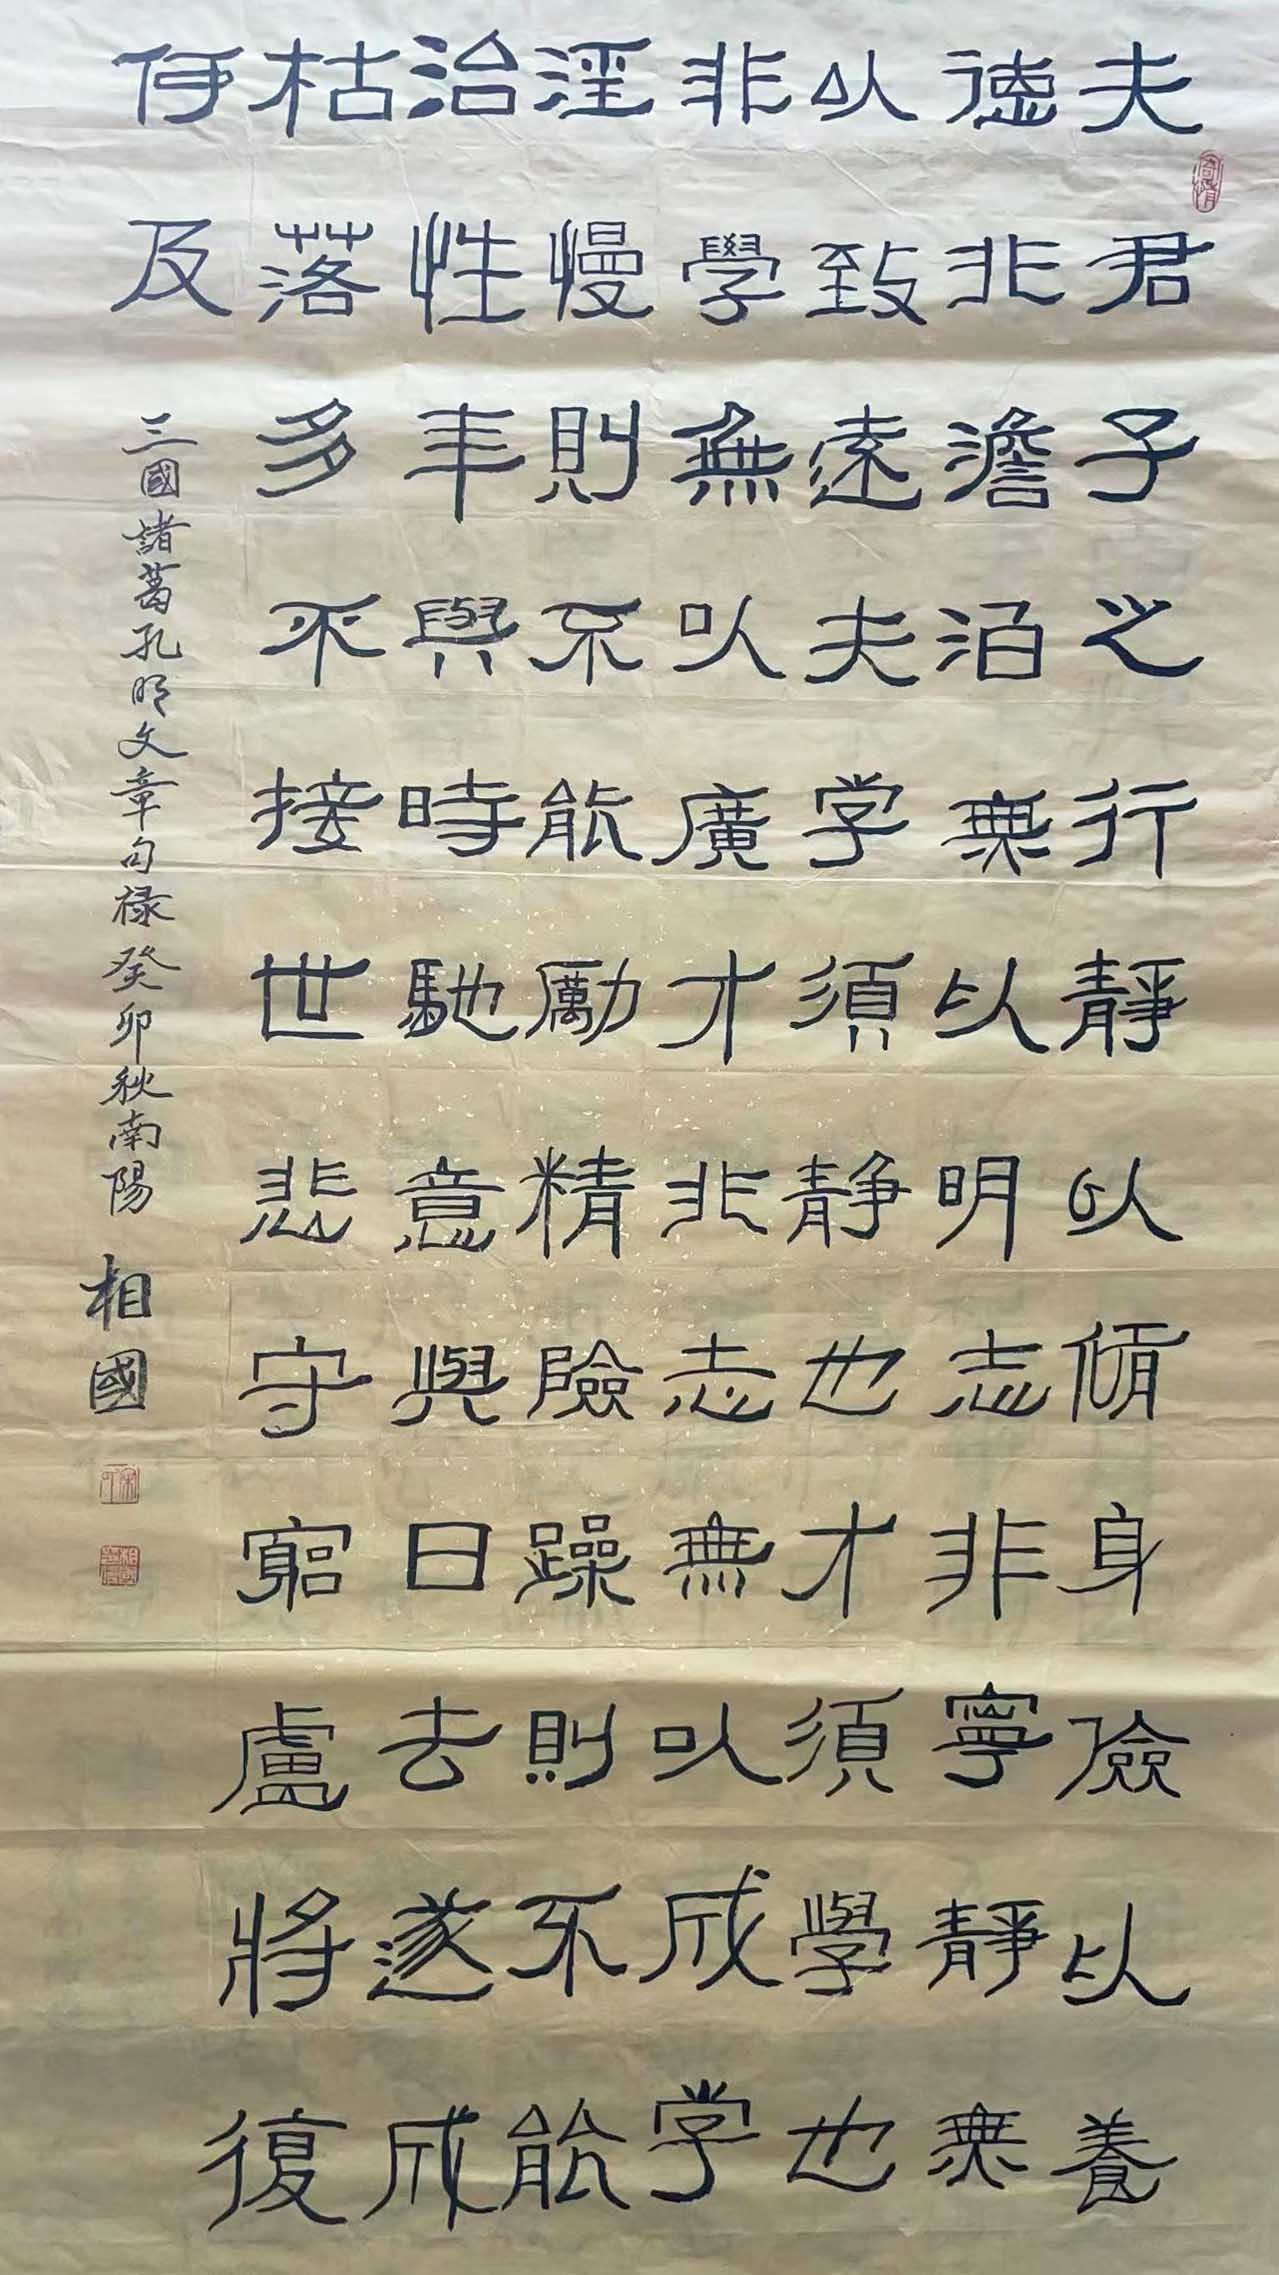 夫君子之行靜以脩身儉以養
德非澹泊無以明志非寧靜無
以致遠夫学須靜也才須學也
非學無以廣才非志無以成学
淫慢則不能勵精險躁則不能
治性年與時馳意與日去遂成
枯落多不接世悲守窮廬將復
何及
三國諸葛孔明文章句祿癸卯秋南陽相國